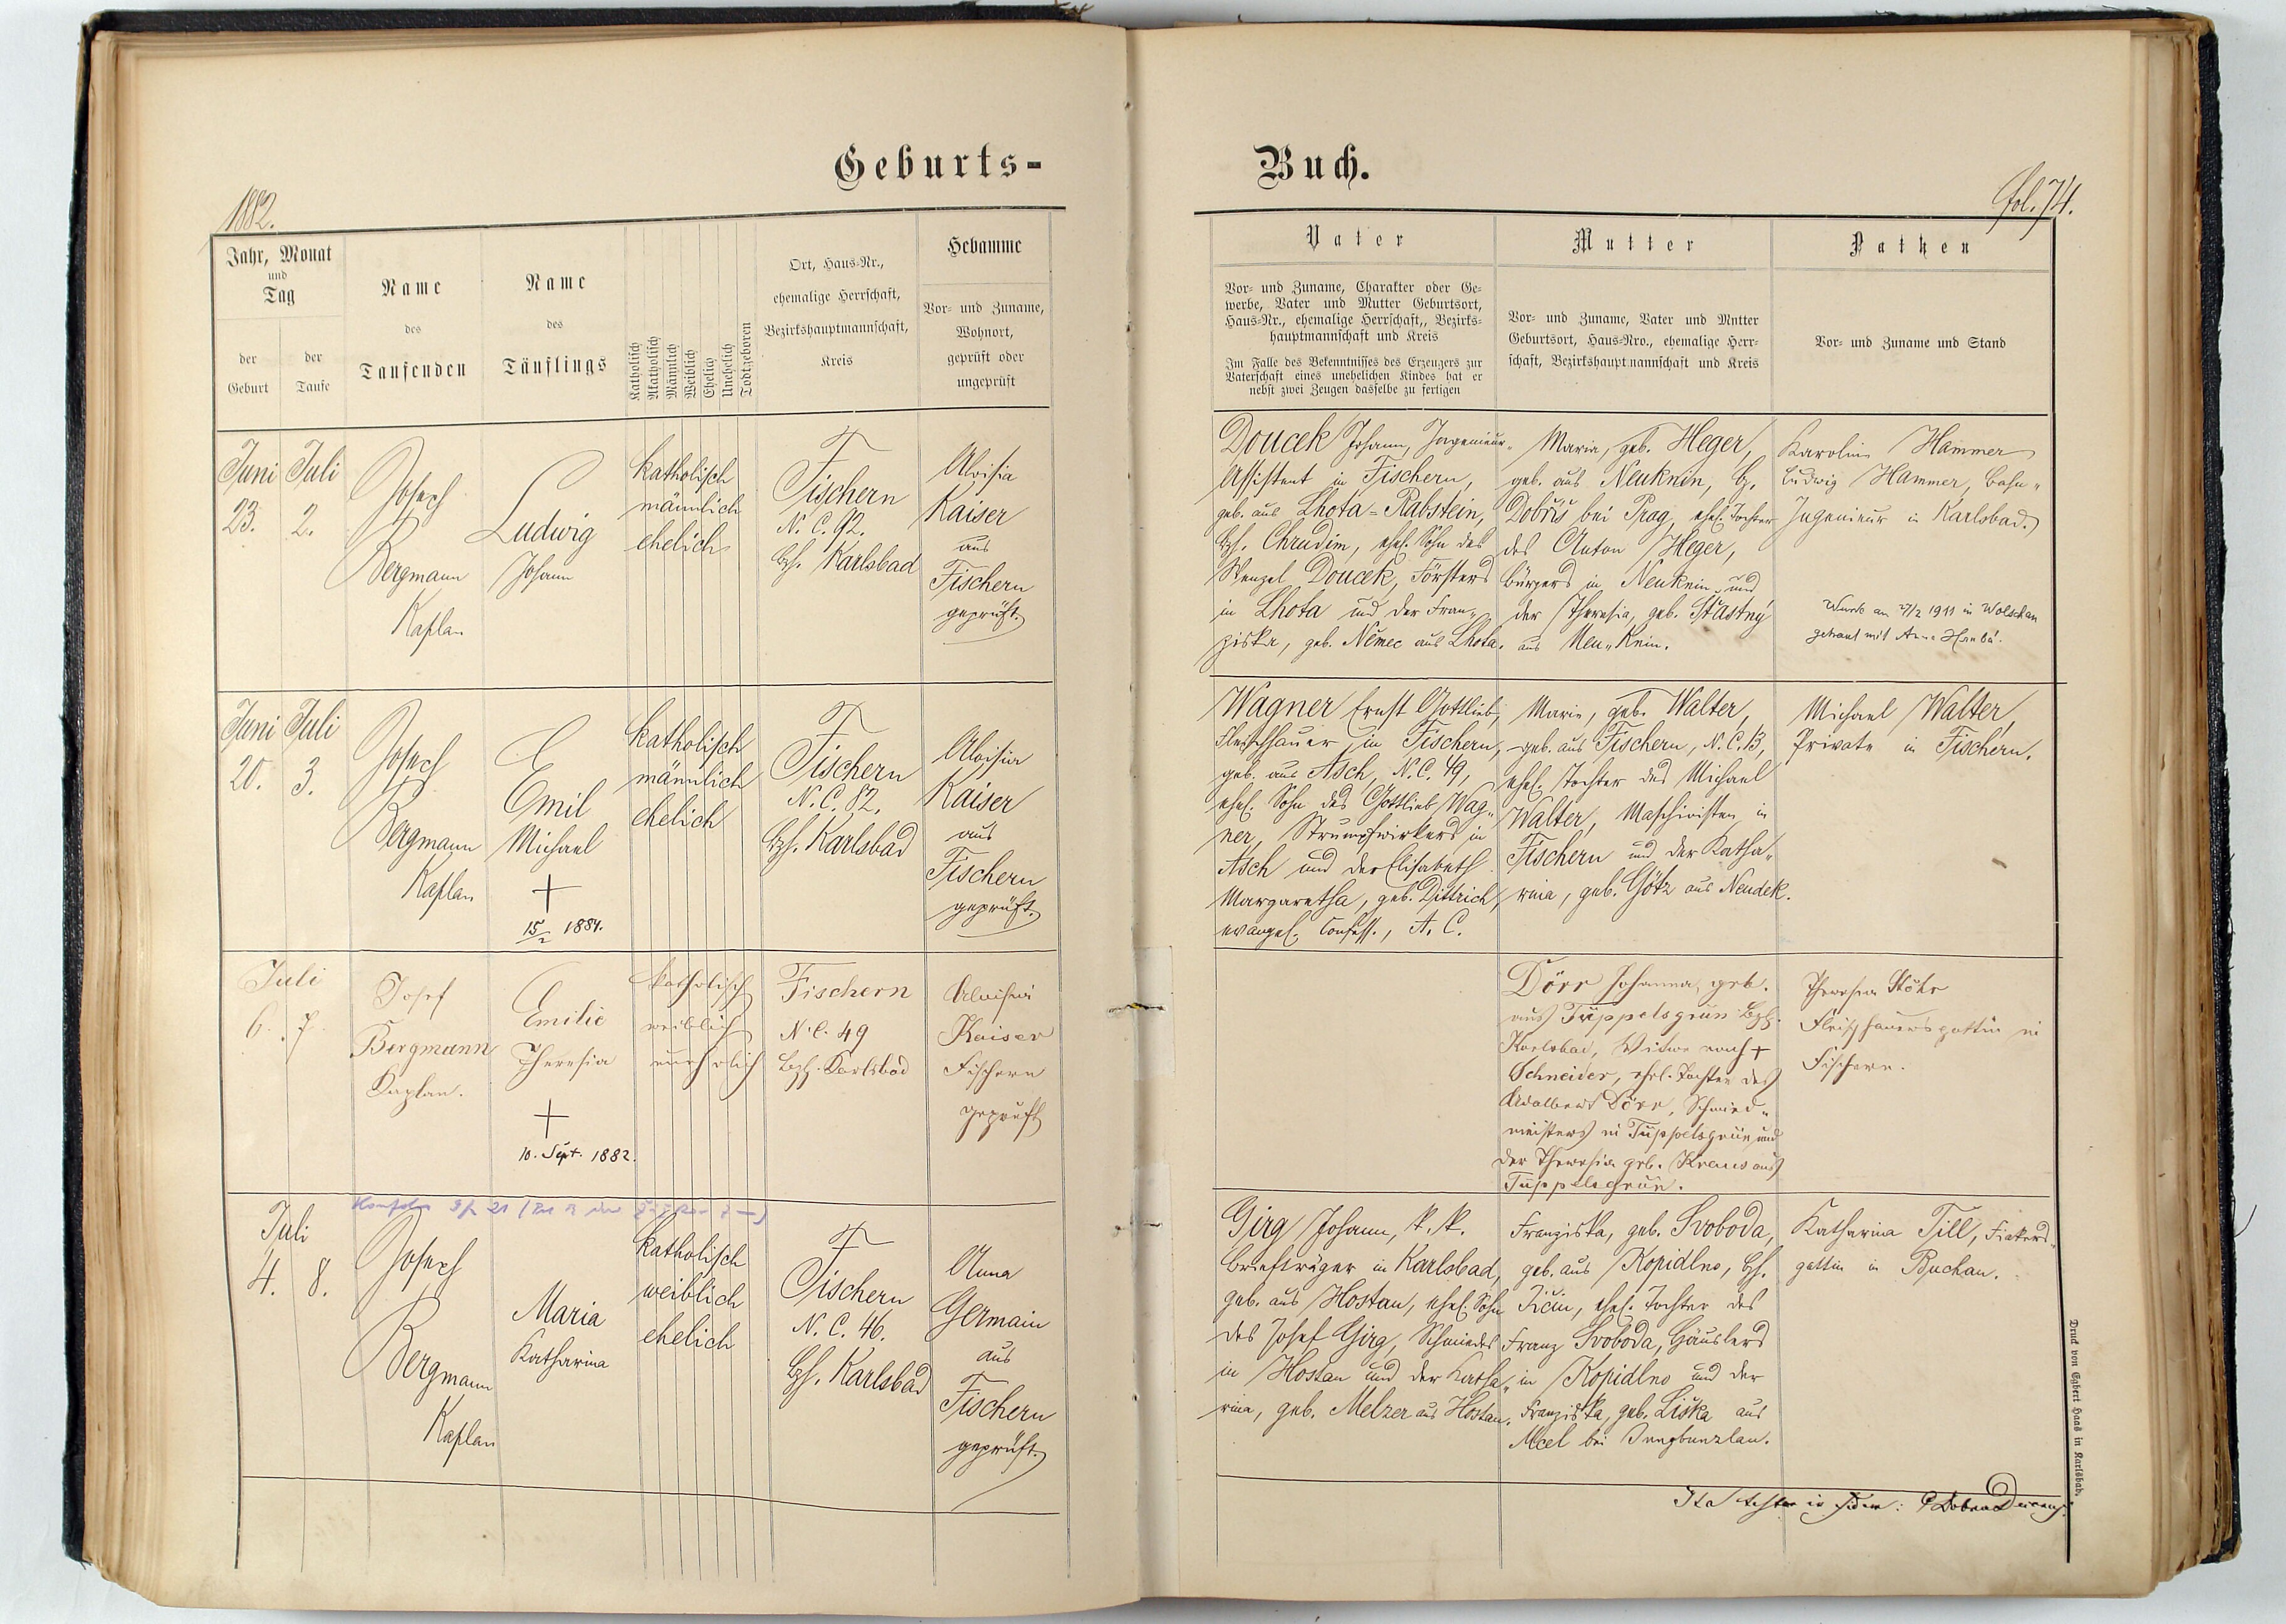 Geburts-
Buch.
1882.
fol. 74.
Jahr, Monat
und
Tag
der
Geburt
der
Taufe
Name
des
Taufenden
Name
des
Täuflings
Katholisch
Akatholisch
Männlich
Weiblich
Ehelich
Unehelich
Todtgeboren
Ort, Haus-Nr.,
ehemalige Herrschaft,
Bezirkshauptmannschaft,
Kreis
Hebamme
Vor- und Zuname,
Wohnort,
geprüft oder
ungeprüft
Vater
Vor- und Zuname, Charakter oder Ge-
werbe, Vater und Mutter Geburtsort,
Haus-Nr., ehemalige Herrschaft,, Bezirks-
hauptmannschaft und Kreis
Im Falle des Bekenntnisses des Erzeugers zur
Vaterschaft eines unehelichen Kindes hat er
nebst zwei Zeugen dasselbe zu fertigen
Mutter
Vor- und Zuname, Vater und Mutter
Geburtsort, Haus-Nro., ehemalige Herr-
schaft, Bezirkshauptmannschaft und Kreis
Pathen
Vor- und Zuname und Stand
Juni
23.
Juli
2.
Josef
Bergmann
Kaplan
Ludwig
Johann
katholisch
männlich
ehelich
Fischern
N. C. 92.
Bzh. Karlsbad
Aloisia
Kaiser
aus
Fischern
geprüft.
Doucek Johann, Ingenieur-
Assistent in Fischern,
geb. aus Lhota-Rabstein,
Bzh. Chrudim, ehel. Sohn des
Wenzel Doucek, Försters
in Lhota und der Fran-
ziska, geb. Němec aus Lhota.
Maria, geb. Heger,
geb. aus Neuknin, Bz.
Dobřiš bei Prag, ehel. Tochter
des Anton Heger,
Bürgers in Neuknin und
der Theresia, geb. Štastný
aus Neu-Knin.
Karolina Hammer
Ludwig Hammer, Bahn-
Ingenieur in Karlsbad.
Wurde am 27/2 1911 in Wolschan
getraut mit Anna
Juni
20.
Juli
3.
Josef
Bergmann
Kaplan
Emil
Michael
+
15/2 1884.
katholisch
männlich
ehelich
Fischern
N. C. 82.
Bzh. Karlsbad
Aloisia
Kaiser
aus
Fischern
geprüft.
Wagner Ernst Gottlieb,
Fleischhauer in Fischern,
geb. aus Asch, N. C. 49,
ehel. Sohn des Gottlieb Wag-
ner, Strumpfwirkers in
Asch und der Elisabeth
Margaretha, geb. Dittrich,
evangel. Confess., A. C.
Marie, geb. Walter,
geb. aus Fischern, N. C. 13,
ehel. Tochter des Michael
Walter, Maschinisten in
Fischern und der Katha-
rina, geb. Götz aus Neudek.
Michael Walter,
Private in Fischern.
Juli
6. 7.
Josef
Bergmann
Kaplan.
Emilie
Theresia
+
10. Sept. 1882.
katholisch
weiblich
unehelich
Fischern
N. C. 49
Bzh. Karlsbad
Aloisia
Kaiser
Fischern
geprüft
Dörr Johanna, geb.
aus Tüppelsgrün Bzh.
Karlsbad, Witwe nach +
Schneider, ehel. Tochter des
Adalbert Dörr, Schmied-
meisters in Tüppelsgrün und
der Theresia geb. Kraus aus
Tüppelsgrün.
Theresia Stöhr
Fleischhauersgattin in
Fischern.
Juli
4. 8.
Josef
Bergmann
Kaplan
Maria
Katharina
katholisch
weiblich
ehelich
Fischern
N. C. 46.
Bzh. Karlsbad
Anna
Germain
aus
Fischern
geprüft.
Girg Johann, k. k.
Briefträger in Karlsbad,
geb. aus Hostau, ehel. Sohn
des Josef Girg, Schmiedes
in Hostau und der Katha-
rina, geb. Melzer aus Hostau.
Franziska, geb. Svoboda,
geb. aus Kopidlno, Bzh.
Jičín, ehel. Tochter des
Franz Svoboda, Häuslers
in Kopidlno und der
Franziska, geb. Liška aus
Mcel bei Jungbunzlau.
Katharina Till, Fiakers-
gattin in Buchau.
Ita testor in fidem:
Druck von Egbert Haas in Karlsbad.